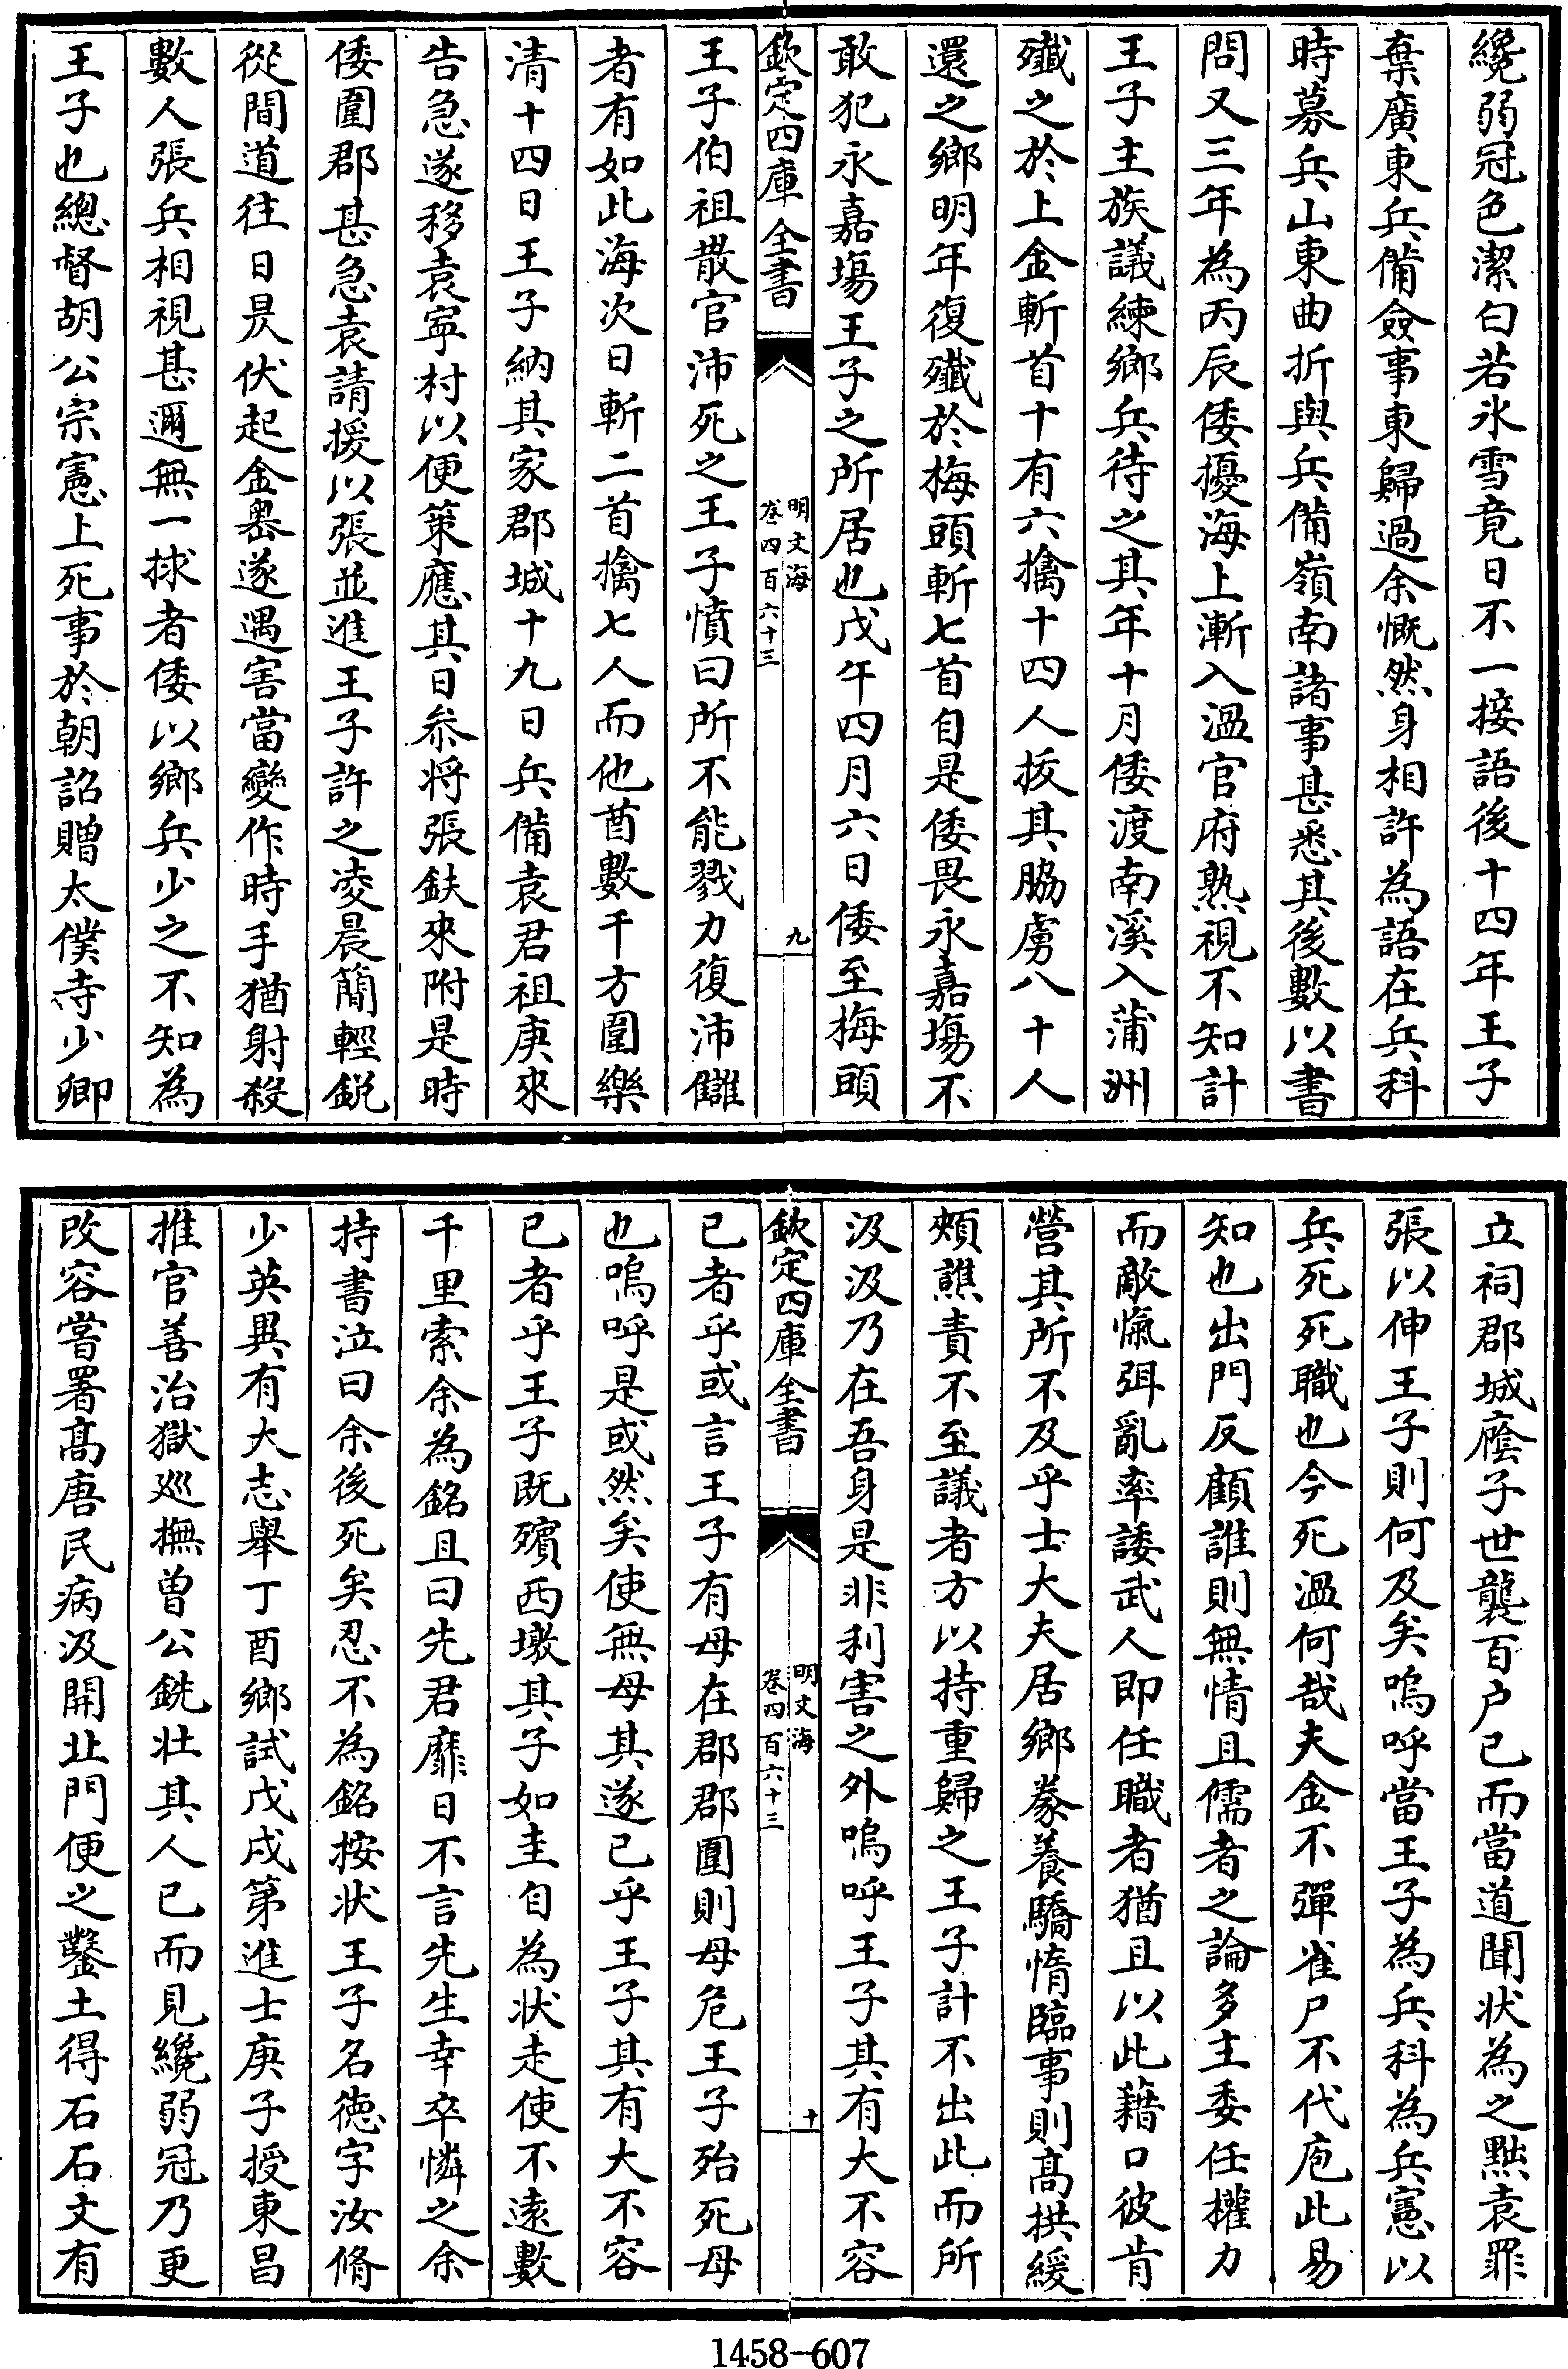 纔弱冠色潔白若氷雪竟日不一接語後十四年王子
棄廣東兵備僉事東歸過余慨然身相許為語在兵科
時募兵山東曲折與兵備嶺南諸事甚悉其後數以書
問又三年為丙辰倭擾海上漸入温官府熟視不知計
王子主族議練鄉兵待之其年十月倭渡南溪入蒲洲
殲之於上金斬首十有六擒十四人拔其脇虜八十人
還之鄉明年復殲於梅頭斬七首自是倭畏永嘉塲不
敢犯永嘉塲王子之所居也戊午四月六日倭至梅頭
欽定四庫全書
明文海
卷四百六十三
九
王子伯祖散官沛死之王子憤曰所不能戮力復沛讎
者有如此海次日斬二首擒七人而他酋數千方圍樂
清十四日王子納其家郡城十九日兵備袁君祖庚來
告急遂移袁寧村以便策應其日叅将張鈇來附是時
倭圍郡甚急袁請援以張並進王子許之凌晨簡輕鋭
從間道往日昃伏起金嶴遂遇害當變作時手猶射殺
數人張兵相視甚邇無一捄者倭以鄉兵少之不知為
王子也總督胡公宗憲上死事於朝詔贈太僕寺少卿
立祠郡城廕子世襲百户已而當道聞状為之黜袁罪
張以伸王子則何及矣嗚呼當王子為兵科為兵憲以
兵死死職也今死温何哉夫金不彈雀尸不代庖此易
知也出門反顧誰則無情且儒者之論多主委任權力
而敵愾弭亂率諉武人即任職者猶且以此藉口彼肯
營其所不及乎士大夫居鄉豢養驕惰臨事則髙拱緩
頰譙責不至議者方以持重歸之王子計不出此而所
汲汲乃在吾身是非利害之外嗚呼王子其有大不容
欽定四庫全書
明文海
卷四百六十三
十
已者乎或言王子有母在郡郡圍則母危王子殆死母
也嗚呼是或然矣使無母其遂已乎王子其有大不容
已者乎王子既殯西墩其子如圭自為状走使不遠數
千里索余為銘且曰先君靡日不言先生幸卒憐之余
持書泣曰余後死矣忍不為銘按状王子名徳字汝脩
少英異有大志舉丁酉鄉試戊戌第進士庚子授東昌
推官善治獄廵撫曽公銑壮其人已而見纔弱冠乃更
改容甞署髙唐民病汲開北門便之鑿土得石石文有
1458-607